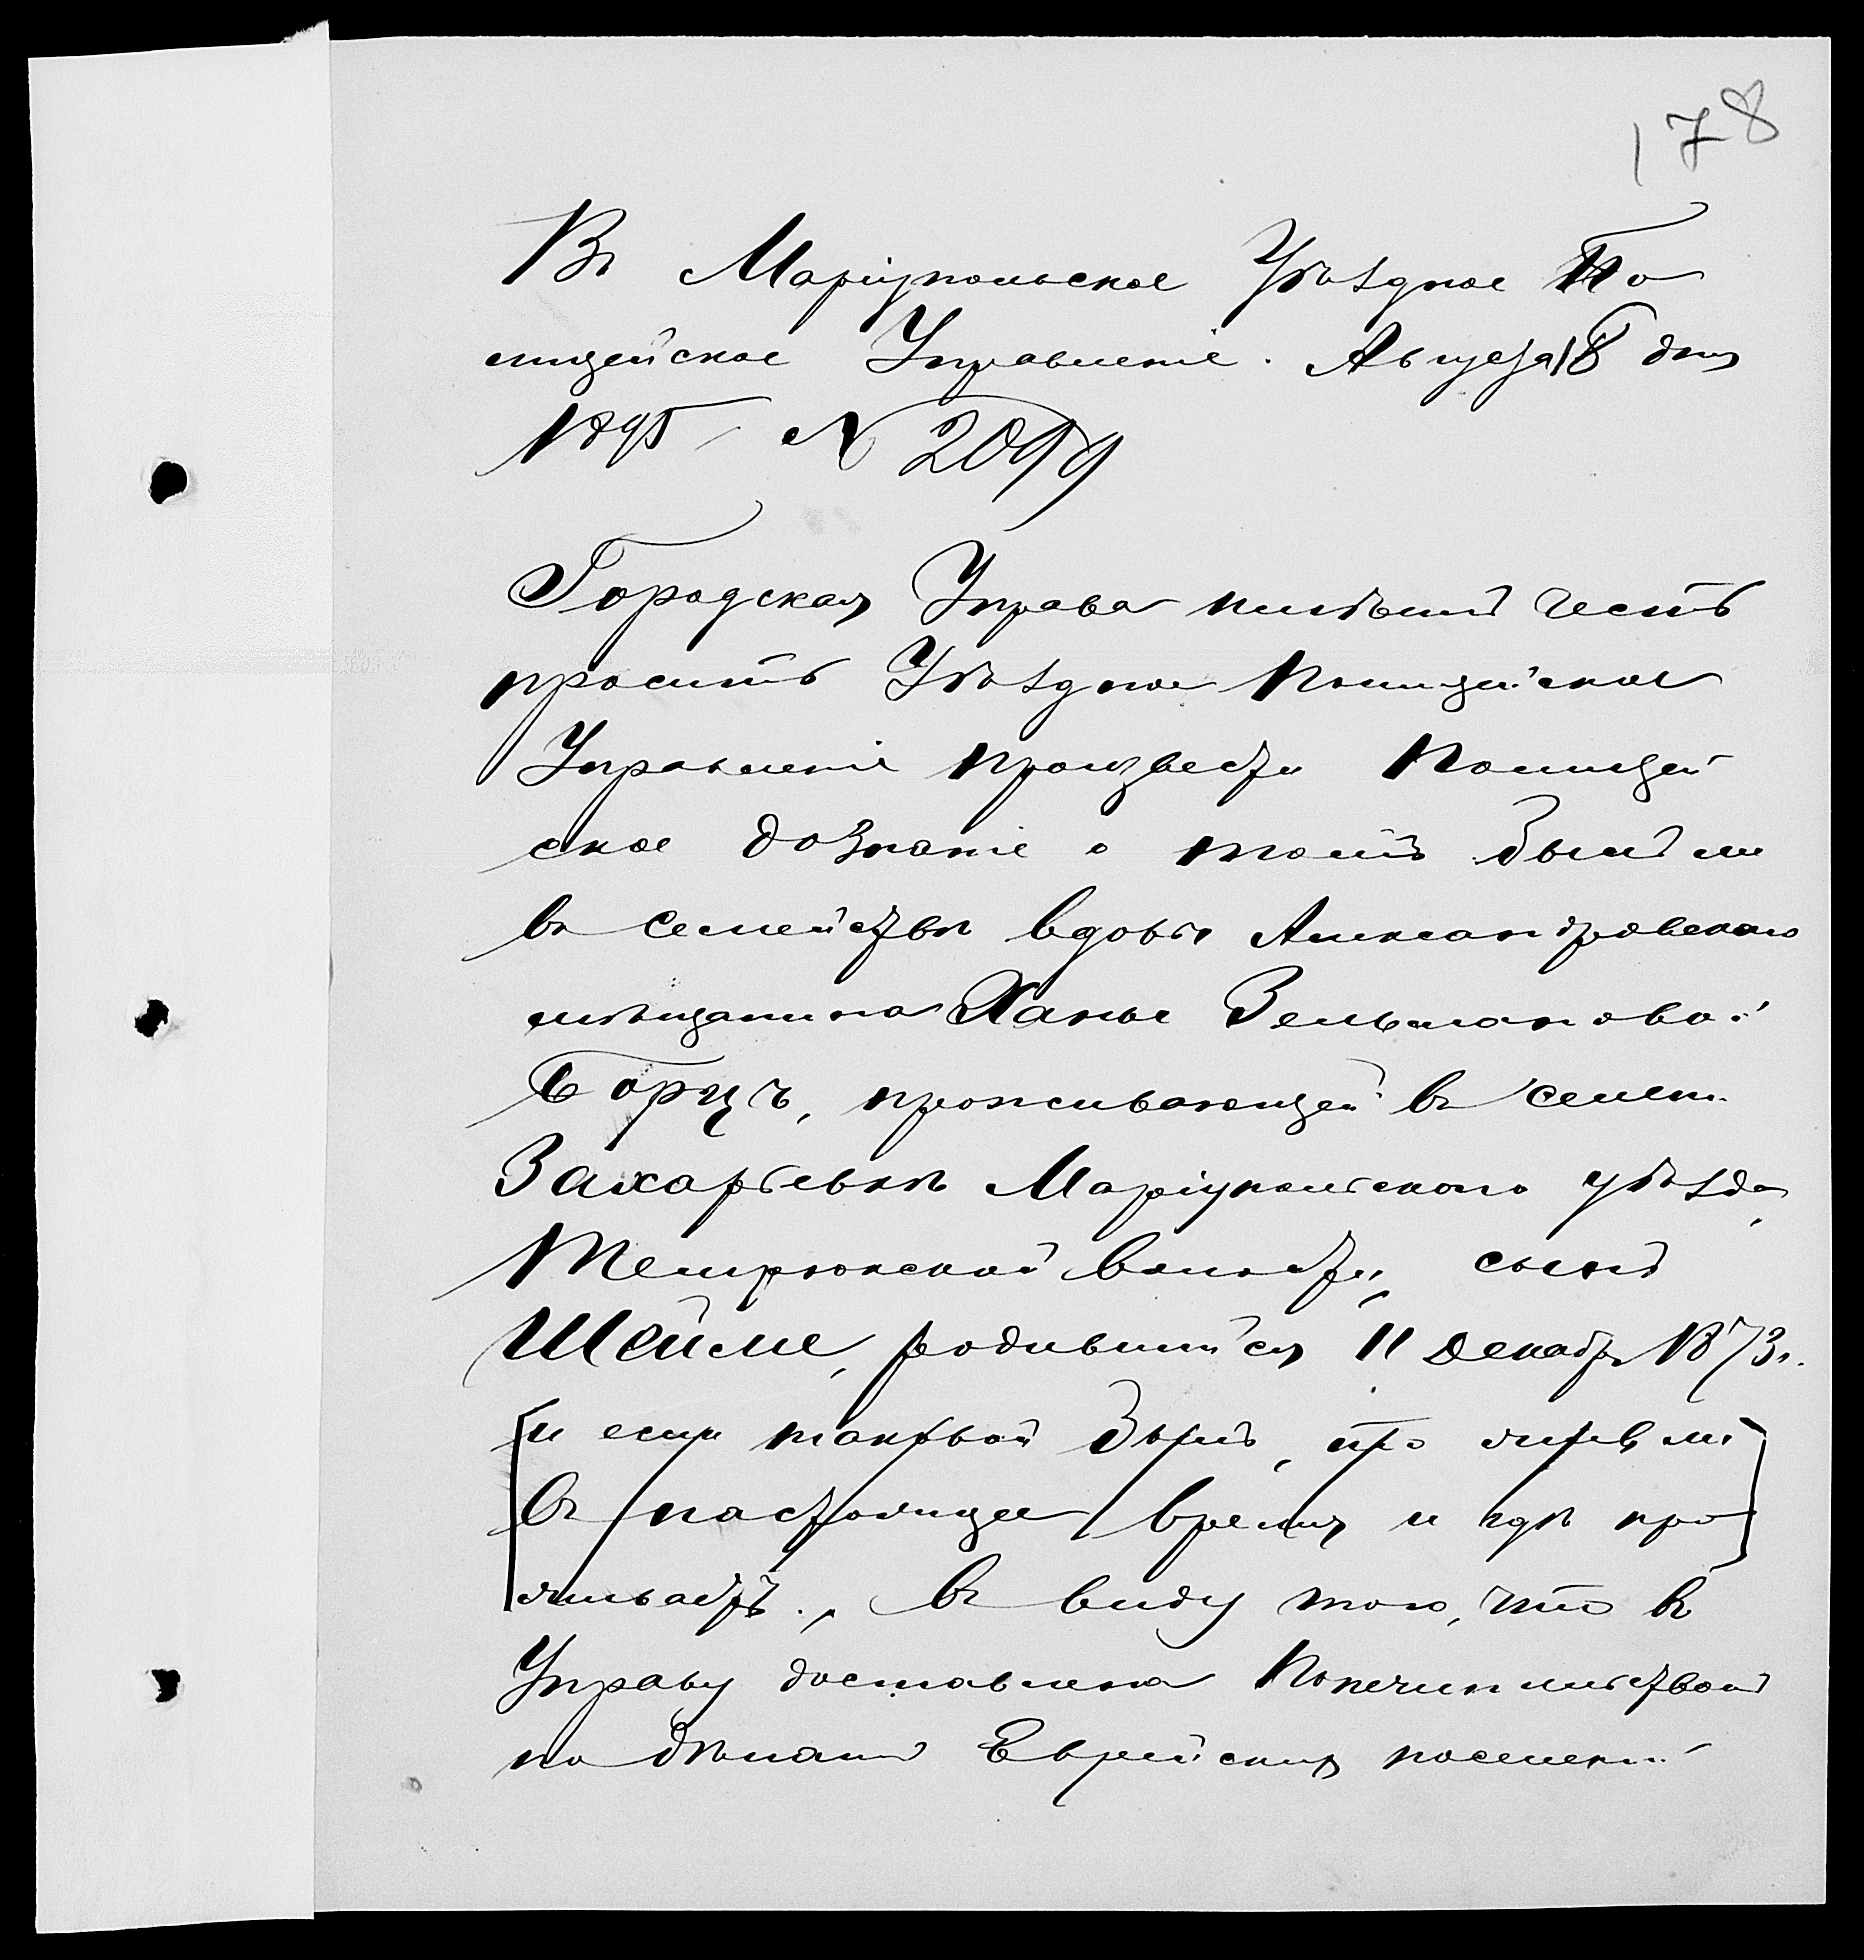 178
Въ Маріупольское Уѣздное По
лицейское Управленіе. Августа 18 дня
1895 № 2099
Городская Управа имѣетъ честь
просить Уѣздное Полицейское
Управленіе произвести Полицей
ское дознаніе о томъ былъ ли
въ семействѣ вдовы Александровскаго
мѣщанина Ханы Зельмановой
Борцъ, проживающей въ селен.
Захарьевкѣ Маріупольскаго уѣзда,
Темрюкской волости, сынъ
Шейме, родившійся 11 Декабр 1873 г.
и если таковой былъ, то живъ ли
въ настоящее время и гдѣ про
живаетъ., въ виду того, что въ
Управу доставлена Попечительствомъ
по дѣламъ Еврейскихъ поселеній